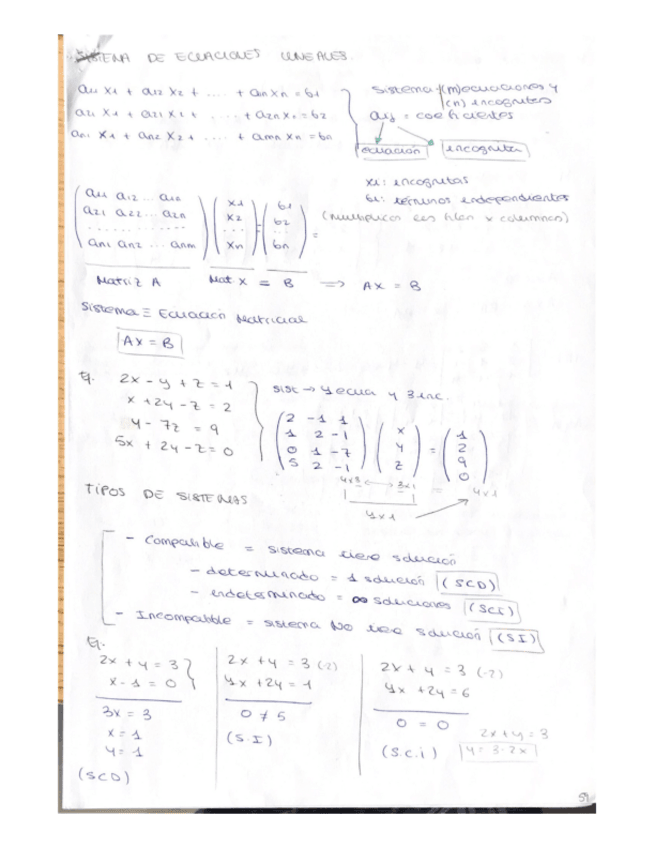 SISTEMA DE ECUACIONES LINEALES.
a11 x1 + a12 x2 + .... + a1n xn = b1
a21 x1 + a21 x2 + .... + a2n xn = b2
an1 x1 + an2 x2 + .... + amn xn = bn
Sistema (m) ecuaciones y
(n) incognitas
aij = coeficientes
ecuación incognita
xi: incognitas
bi: términos independientes
(multiplicar las filas x columnas)
a11 a12 ... a1n x1 b1
a21 a22 ... a2n x2 = b2 =
............... ... ...
an1 an2 ... anm xn bn
Matriz A Mat X = B => AX = B
Sistema ≡ Ecuación Matricial
AX = B
Ej. 2x - y + z = 1
x + 2y - z = 2
y - 7z = 9
5x + 2y - z = 0
sist → 4 ecua y 3 inc.
2 -1 1 x 1
1 2 -1 y = 2
0 1 -7 z 9
5 2 -1 0
4x3 3x1 = 4x1
4x1
TIPOS DE SISTEMAS
- Compatible = sistema tiene solución
- determinado = 1 solución (SCD)
- indeterminado = ∞ soluciones (SCI)
- Incompatible = sistema NO tiene solución (SI)
Ej.
2x + y = 3
x - 1 = 0
3x = 3
x = 1
y = 1
(SCD)
2x + y = 3 (-2)
4x + 2y = 1
0 ≠ 5
(S.I)
2x + y = 3 (-2)
4x + 2y = 6
0 = 0
(S.C.i)
2x + y = 3
y = 3 - 2x